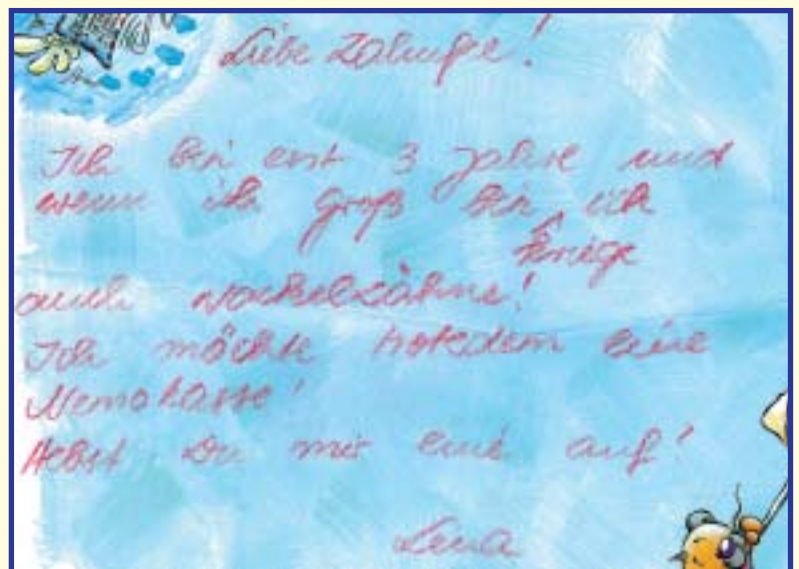 Liebe Zahnfee!
Ich bin erst 3 Jahre und
wenn ich groß bin ich
kriege
auch Wackelzähne!
Ich möchte trotzdem eine
Nemotasse!
Hebst Du mir eine auf!
Lena